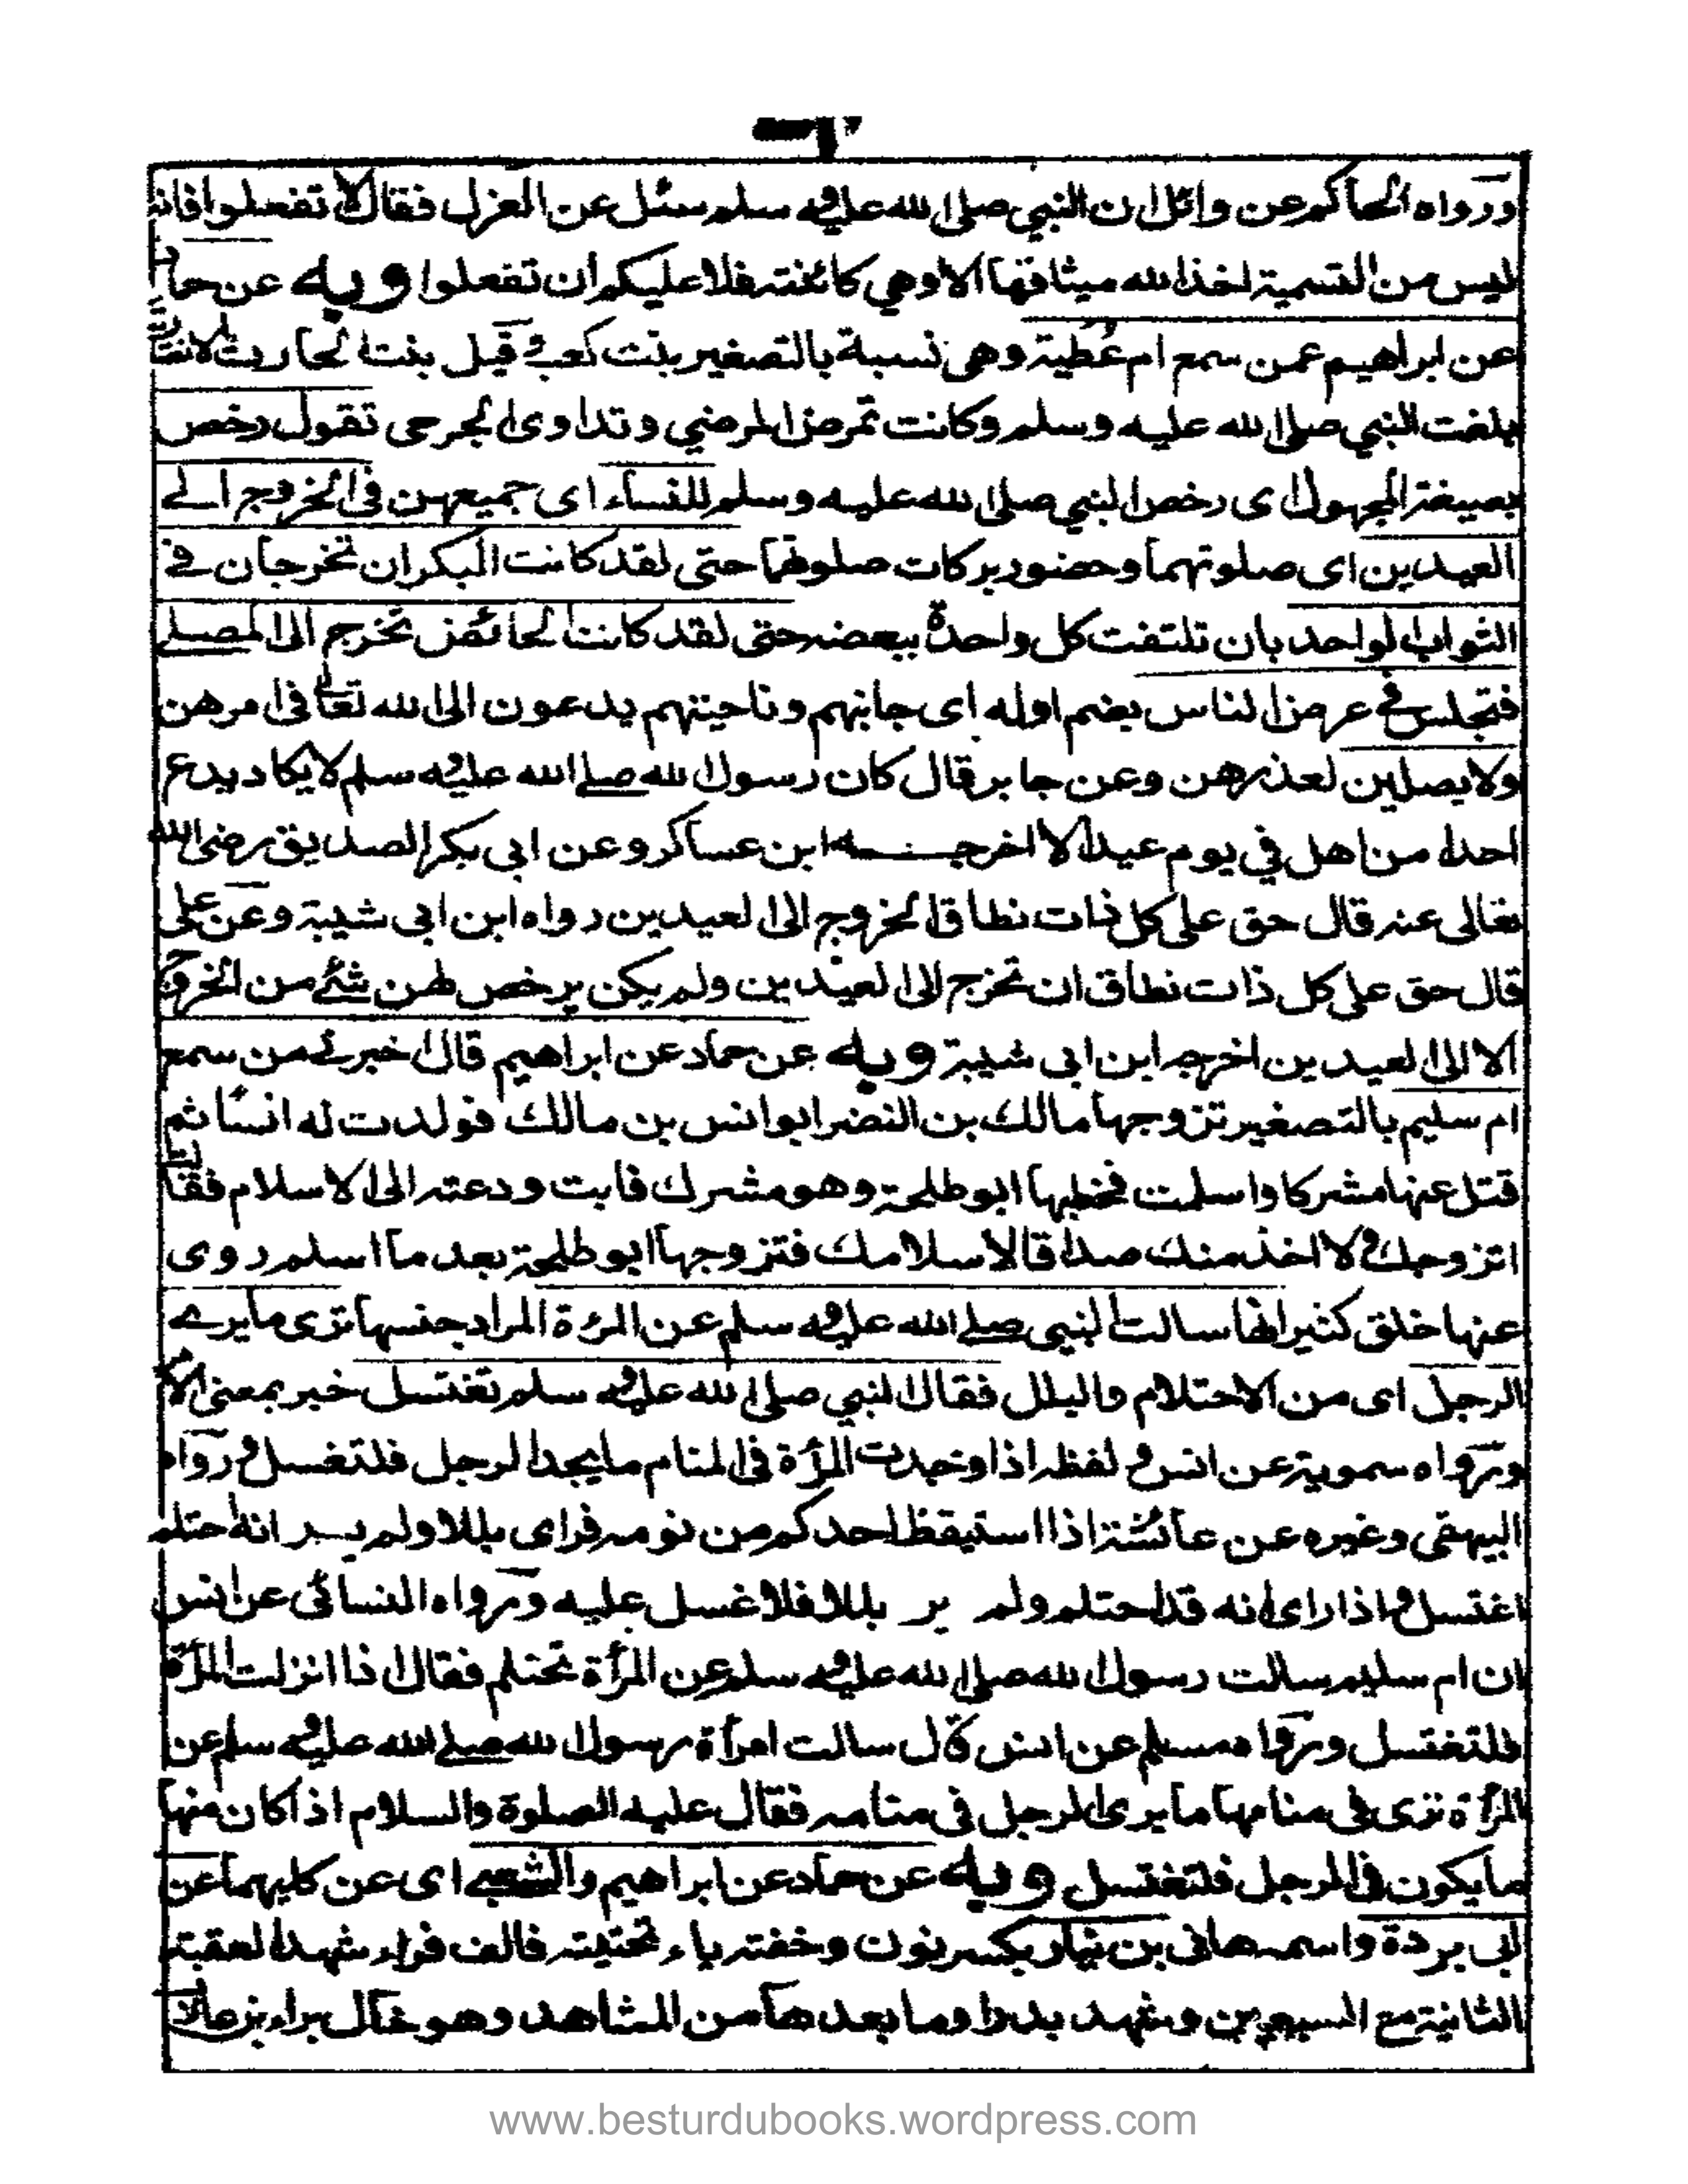 ورواه الحاكم عن وائل ان النبي صلى الله عليه وسلم سئل عن العزل فقال لا تفعلوا فانه
ليس من القسمية اخذ الله ميثاقها الا وهي كائنة فلا عليكم ان تفعلوا وبه عن حماد
عن ابراهيم عمن سمع ام عطية وهى نسبة بالتصغير بنت كعب وقيل بنت الحارث الانصارية
بلغت النبي صلى الله عليه وسلم وكانت تمرض المرضي وتداوى الجرحى تقول رخص
بصيغة المجهول اى رخص النبي صلى الله عليه وسلم للنساء اى جميعهن فى الخروج الے
العيدين اى صلوتهما وحضور بركات صلوتهما حتى لقد كانت البكران تخرجان فے
الثواب لواحد بان تلتفت كل واحدة ببعضه حتى لقد كانت الحائض تخرج الى المصلے
فتجلس فے عرض الناس بضم اوله اى جانبهم وناحيتهم يدعون الى الله تعالى فى امرهن
ولا يصلين لعذرهن وعن جابر قال كان رسول الله صلے الله عليه وسلم لا يكاد يدع
احدا من اهل في يوم عيد الا اخرجه ابن عساكر وعن ابى بكر الصديق رضى الله
تعالى عنه قال حق على كل ذات نطاق الخروج الى العيدين رواه ابن ابى شيبة وعن على
قال حق على كل ذات نطاق ان تخرج الى العيدين ولم يكن يرخص لهن شئ من الخروج
الا الى العيدين اخرجه ابن ابى شيبة وبه عن حماد عن ابراهيم قال اخبرنے من سمع
ام سليم بالتصغير تزوجها مالك بن النضر ابو انس بن مالك فولدت له انسا ثم
قتل عنها مشركا واسلمت فخطبها ابو طلحة وهو مشرك فابت ودعته الى الاسلام فقالت
اتزوجك ولا اخذ منك صداقا الا اسلامك فتزوجها ابو طلحة بعد ما اسلم روى
عنها خلق كثير انها سالت النبي صلے الله عليه وسلم عن المرءة المراد جنسها ترى ما يرے
الرجل اى من الاحتلام والبلل فقال النبي صلى الله عليه وسلم تغتسل خبر بمعنى الامر
ورواه سموية عن انس ولفظه اذا وجدت المرأة فى المنام ما يجد الرجل فلتغسل ورواه
البيهقى وغيره عن عائشة اذا استيقظ احدكم من نومه فراى بللا ولم ير انه احتلم
اغتسل واذا راى انه قد احتلم ولم ير بللا فلا غسل عليه ورواه النسائى عن انس
ان ام سليم سالت رسول الله صلى الله عليه وسلم عن المرأة تحتلم فقال اذا انزلت المرأة
فلتغتسل ورواه مسلم عن انس قال سالت امرأة رسول الله صلے الله عليه وسلم عن
المرأة ترى فى منامها ما يرى الرجل فى منامه فقال عليه الصلوة والسلام اذا كان منها
ما يكون فى الرجل فلتغتسل وبه عن حماد عن ابراهيم والشعبے اى عن كليهما عن
ابى بردة واسمه هانى بن نيار بكسر نون وخفته ياء تحتيته فالف فراء شهد العقبة
الثانية مع السبعين وشهد بدرا وما بعدها من المشاهد وهو خال براء بن عازب
www.besturdubooks.wordpress.com